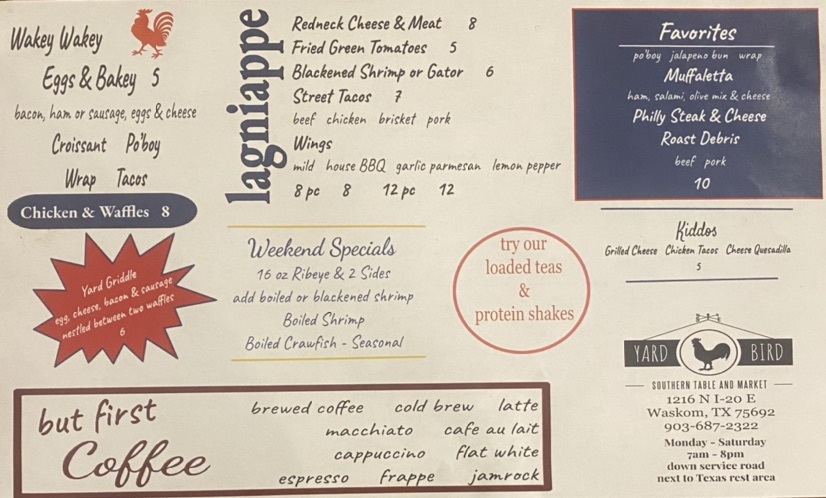 Wakey Wakey
Eggs & Bakey 5
bacon, ham or sausage, eggs & cheese
Croissant Po'boy
Wrap Tacos
Chicken & Waffles 8
Yard Griddle
egg, cheese, bacon & sausage
nestled between two waffles
6
lagniappe
Redneck Cheese & Meat 8
Fried Green Tomatoes 5
Blackened Shrimp or Gator 6
Street Tacos 7
beef chicken brisket pork
Wings
mild house BBQ garlic parmesan lemon pepper
8 pc 8 12 pc 12
Weekend Specials
16 oz Ribeye & 2 Sides
add boiled or blackened shrimp
Boiled Shrimp
Boiled Crawfish - Seasonal
try our
loaded teas
&
protein shakes
Favorites
po'boy jalapeno bun wrap
Muffaletta
ham, salami, olive mix & cheese
Philly Steak & Cheese
Roast Debris
beef pork
10
Kiddos
Grilled Cheese Chicken Tacos Cheese Quesadilla
5
YARD BIRD
SOUTHERN TABLE AND MARKET
1216 N I-20 E
Waskom, TX 75692
903-687-2322
Monday - Saturday
7am - 8pm
down service road
next to Texas rest area
but first
Coffee
brewed coffee cold brew latte
macchiato cafe au lait
cappuccino flat white
espresso frappe jamrock